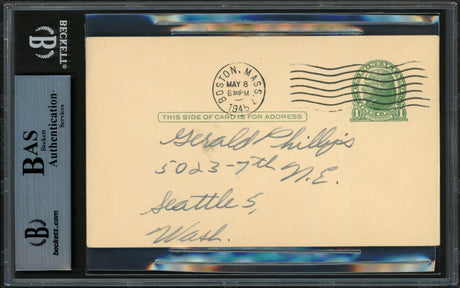 BECKETT
BAS
Beckett
Authentication
Services
beckett.com
BOSTON, MASS.
MAY 8
6 30 PM
1945
THIS SIDE OF CARD IS FOR ADDRESS
Gerald Phillips
5023-7th N.E.
Seattle 5,
Wash.